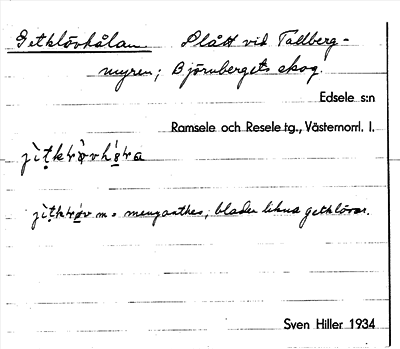 Getklövhålan Slått vid Tallberg-
myren; Björnbergets skog.
Edsele s:n
Ramsele och Resele tg., Västernorrl. l.
jìtkrøvhø̀ra
jìtkrøv m = menyanthes, blader likna getklövar.
Sven Hiller 1934